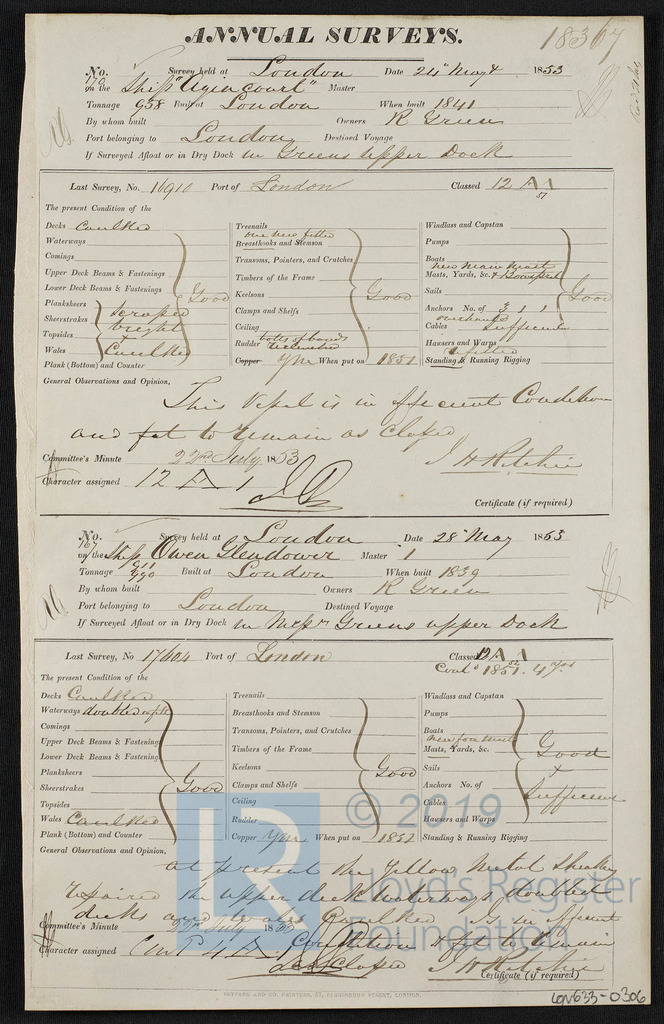 ANNUAL SURVEYS.
18367
No. 170 Survey held at London Date 24th May 1853
on the Ship "Agincourt" Master
Tonnage 958 Built at London When built 1841
By whom built Owners R Green
Port belonging to London Destined Voyage
If Surveyed Afloat or in Dry Dock in Greens upper Dock
Last Survey, No. 16910 Port of London Classed 12 A 1
51
The present Condition of the
Decks Caulked
Waterways
Comings
Upper Deck Beams & Fastenings
Lower Deck Beams & Fastenings
Good
Planksheers
Sheerstrakes scraped
Topsides bright
Wales Caulked
Plank (Bottom) and Counter
Treenails
one new fitted
Breasthooks and Stemson
Transoms, Pointers, and Crutches
Timbers of the Frame
Keelsons Good
Clamps and Shelfs
Ceiling
Rudder
Copper YM When put on 1851
Windlass and Capstan
Pumps
Boats
new Main Mast
Masts, Yards, &c. & Bowsprit
Sails Good
Anchors No. of 3, 1, 1
overhauled
Cables Sufficient
Hawsers and Warps
refitted
Standing & Running Rigging
General Observations and Opinion,
This Vessel is in efficient Condition
and fit to remain as classed
Committee's Minute 22nd July 1853 J H Ritchie
Character assigned 12 A 1
Certificate (if required)
No. 167 Survey held at London Date 28th May 1853
on the Ship Owen Glendower Master
Tonnage 911 Built at London When built 1839
990
By whom built Owners R Green
Port belonging to London Destined Voyage
If Surveyed Afloat or in Dry Dock in Messrs Greens upper Dock
Last Survey, No 17404 Port of London Classed 12 A 1
Contd 1851. 4 yrs
The present Condition of the
Decks Caulked
Waterways doubled
Comings
Upper Deck Beams & Fastening
Lower Deck Beams & Fastening
Planksheers
Sheerstrakes Good
Topsides
Wales Caulked
Plank (Bottom) and Counter
Treenails
Breasthooks and Stemson
Transoms, Pointers, and Crutches
Timbers of the Frame
Keelsons Good
Clamps and Shelfs
Ceiling
Rudder
Copper YM When put on 1852
Windlass and Capstan
Pumps
Boats
new fore Mast
Masts, Yards, &c. Good
Sails &
Anchors No. of Sufficient
Cables
Hawsers and Warps
Standing & Running Rigging
General Observations and Opinion,
at present the Yellow Metal Sheathing
repaired the upper deck waterways doubled
decks and Wales Caulked is in efficient
Committee's Minute 22nd July 1853 Condition & fit to remain
Character assigned Cont 4 A 1 as Classed J H Ritchie
Certificate (if required)
© 2019
Lloyd's Register
Foundation
LR
LON633-0306